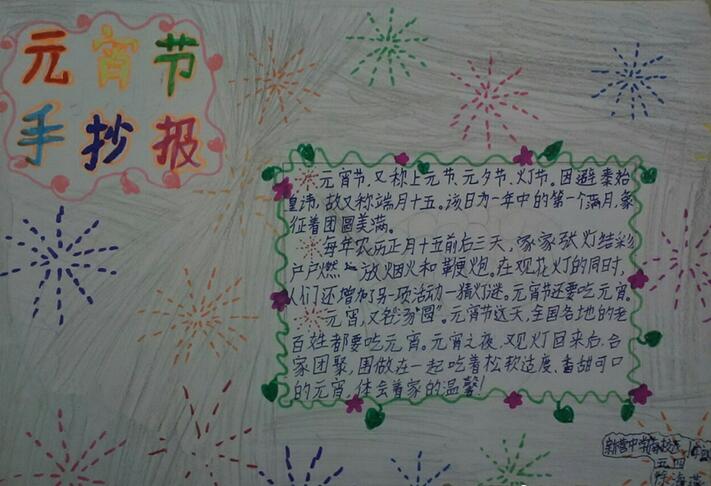 元宵节
手抄报
元宵节,又称上元节、元夕节、灯节。因避秦始
皇讳,故又称端月十五。该日为一年中的第一个满月,象
征着团圆美满。
每年农历正月十五前后三天,家家张灯结彩
户户燃放烟火和鞭炮。在观花灯的同时,
人们还增加了另一项活动一猜灯谜。元宵节还要吃元宵。
元宵,又名"汤圆"。元宵节这天,全国各地的老
百姓都要吃元宵。元宵之夜,观灯回来后,合
家团聚,围做在一起吃着松软适度、香甜可口
的元宵,体会着家的温馨!
新营中学
五四